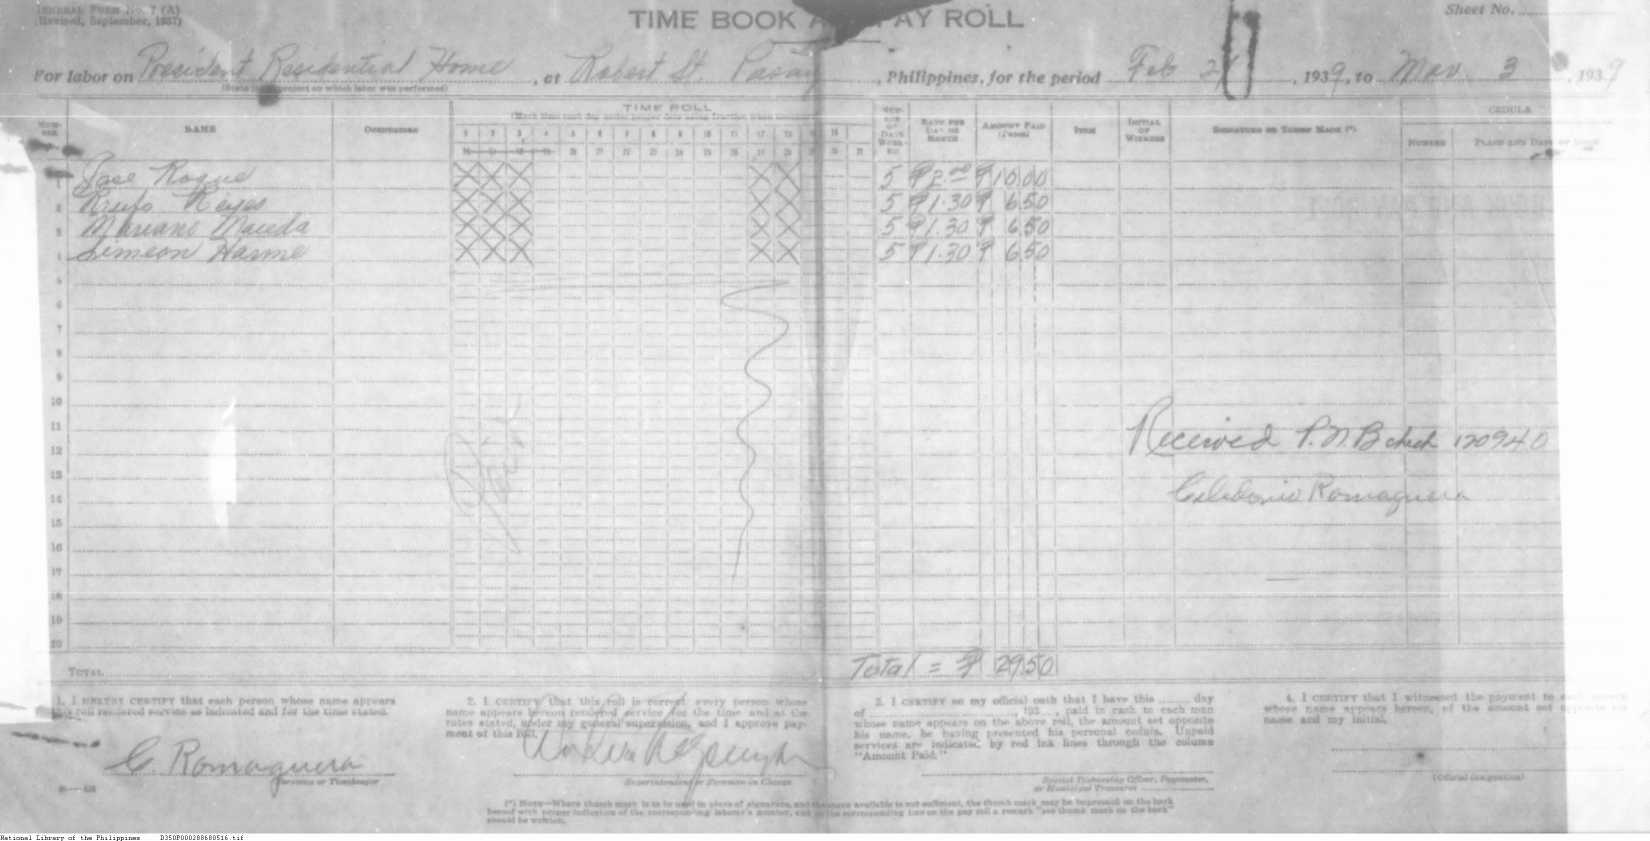 GENERAL FORM NO. 7 (A)
(Revised, September, 1937)
TIME BOOK PAY ROLL
Sheet No.
For labor on President Residential Home, at Robert St. Pasay, Philippines, for the period Feb 2, 1939, to Mar. 3, 1939
NAME
OCCUPATION
TIME ROLL
AMOUNT PAID
INITIAL OF WITNESS
CEDULA
NUMBER
1 Jose Roque 5 ₱2.00 ₱10.00
2 Rufo Reyes 5 ₱1.30 ₱6.50
3 Mariano Maceda 5 ₱1.30 ₱6.50
4 Simeon Harme 5 ₱1.30 ₱6.50
5
6
7
8
9
10
11
12
13
14
15
16
17
18
19
20
Received P.N.B check 120940
Celedonio Romaguera
TOTAL
Total = ₱ 29.50
1. I HEREBY CERTIFY that each person whose name appears
this roll rendered service as indicated and for the time stated.
C. Romaguera
Foreman or Timekeeper
2. I CERTIFY that this roll is correct every person whose
name appears hereon rendered service for the time and at the
rates stated, under my general supervision, and I approve pay-
ment of this roll.
Superintendent or Foreman in Charge
3. I CERTIFY on my official oath that I have this day
of , 193 , paid in cash to each man
whose name appears on the above roll, the amount set opposite
his name, he having presented his personal cedula. Unpaid
services are indicated by red ink lines through the column
"Amount Paid."
Special Disbursing Officer, Paymaster,
or Municipal Treasurer
4. I CERTIFY that I witnessed the payment to each person
whose name appears hereon, of the amount set opposite his
name and my initial.
(Official designation)
(*) NOTE—Where thumb mark is to be used in place of signature, and the space available is not sufficient, the thumb mark may be impressed on the back
hereof with proper indication of the corresponding laborer's number, and on the corresponding line on the pay roll a remark "see thumb mark on the back"
should be written.
National Library of the Philippines D350P000288680516.tif